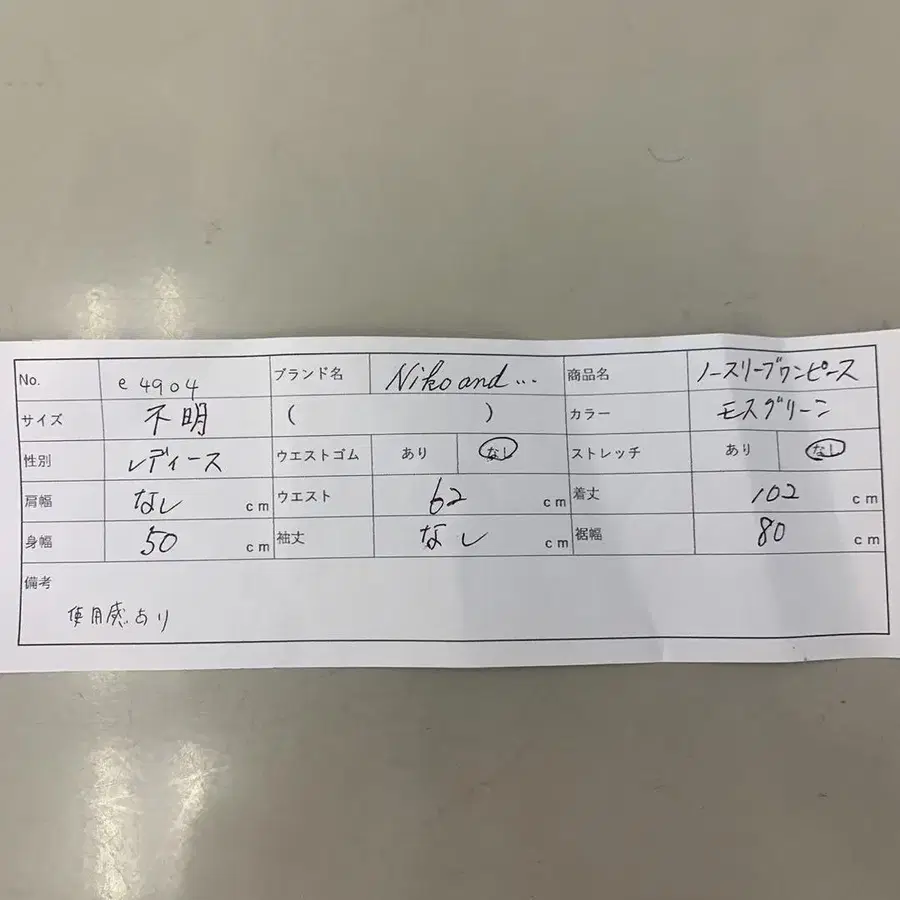 No. e 4904 ブランド名 Niko and ... 商品名 ノースリーブワンピース
サイズ 不明 ( ) カラー モスグリーン
性別 レディース ウエストゴム あり なし ストレッチ あり なし
肩幅 なし cm ウエスト 62 cm 着丈 102 cm
身幅 50 cm 袖丈 なし cm 裾幅 80 cm
備考
使用感あり